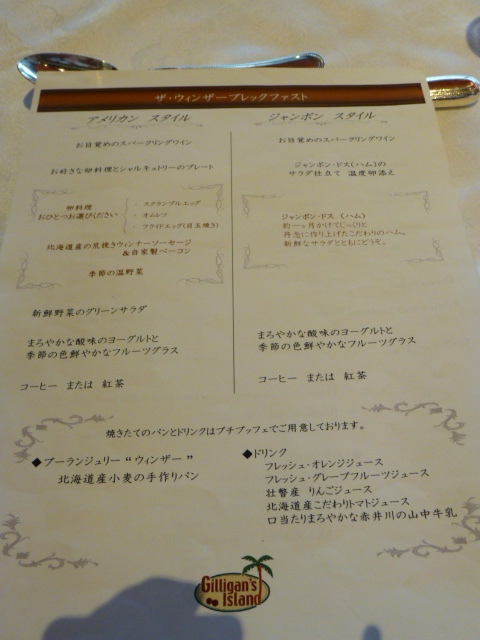 ザ・ウィンザーブレックファスト
アメリカン スタイル
お目覚めのスパークリングワイン
お好きな卵料理とシャルキュトリーのプレート
卵料理
おひとつお選びください
・ スクランブルエッグ
・ オムレツ
・ フライドエッグ(目玉焼き)
北海道産の荒挽きウィンナーソーセージ
&自家製ベーコン
季節の温野菜
新鮮野菜のグリーンサラダ
まろやかな酸味のヨーグルトと
季節の色鮮やかなフルーツグラス
コーヒー または 紅茶
ジャンボン スタイル
お目覚めのスパークリングワイン
ジャンボン・ドス(ハム)の
サラダ仕立て 温度卵添え
ジャンボン・ドス (ハム)
約一ヶ月かけてじっくりと
丹念に作り上げたこだわりのハム。
新鮮なサラダとともにどうぞ。
まろやかな酸味のヨーグルトと
季節の色鮮やかなフルーツグラス
コーヒー または 紅茶
焼きたてのパンとドリンクはプチブッフェでご用意しております。
◆ブーランジュリー “ウィンザー”
北海道産小麦の手作りパン
◆ドリンク
フレッシュ・オレンジジュース
フレッシュ・グレープフルーツジュース
壮瞥産 りんごジュース
北海道産こだわりトマトジュース
口当たりまろやかな赤井川の山中牛乳
Gilligan's
Island